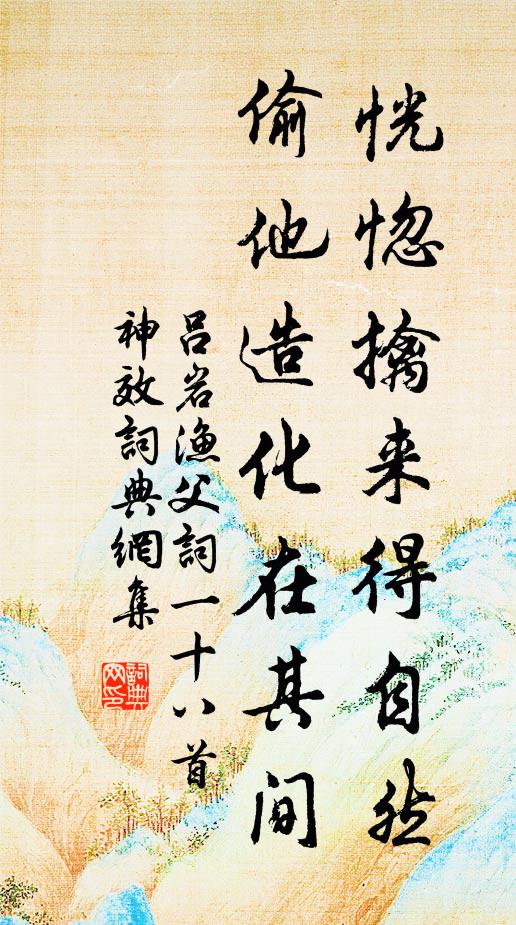 恍惚擒来得自然
偷他造化在其间
吕岩渔父詞一十八首
神效詞典網集
詞典网印